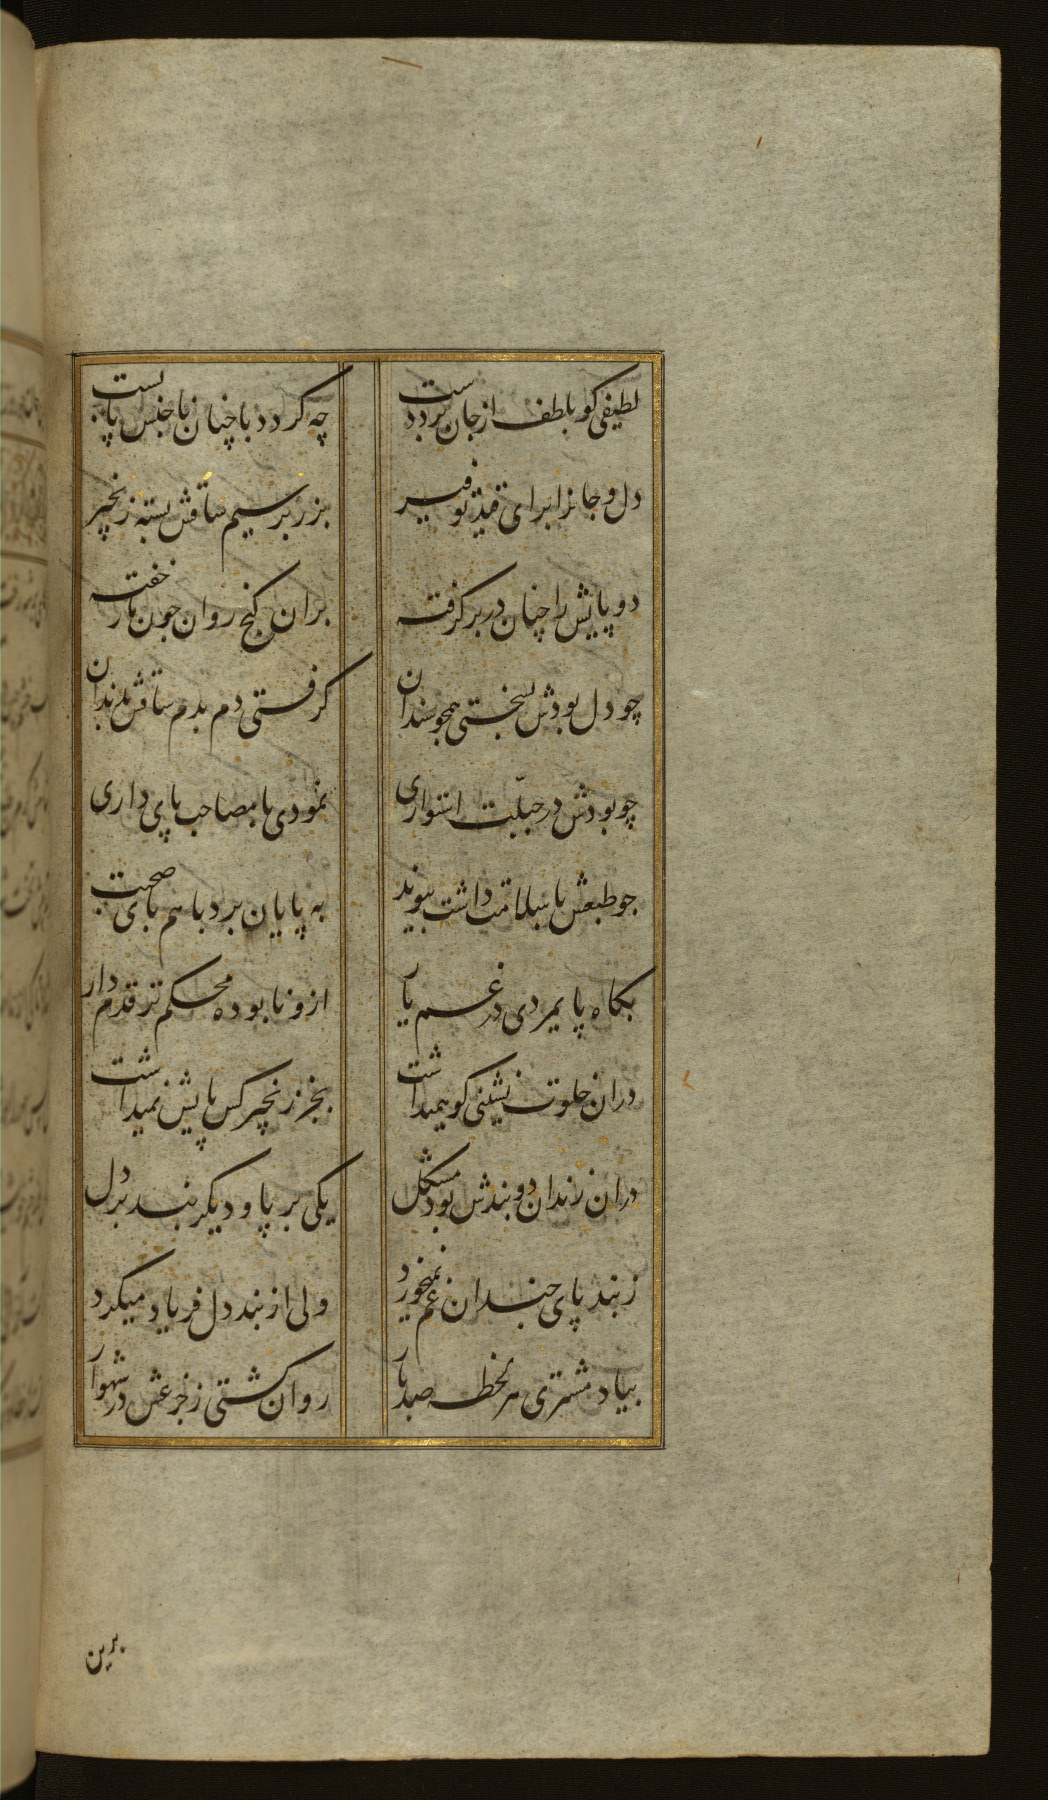 لطیفی کو بلطف از جان برد دست چه کردد با چنان ناجنس پابست
دل و جانرا برای قید توفیر بزر بر سیم ساقش بسته زنجیر
دو پایش را چنان در بر کرفته بران کنج روان جون مار خفته
چو دل بودش بسختی همجو سندان کرفتی دم بدم ساقش بدندان
چو بودش در جبلّت استواری نمودی با مصاحب پای داری
جو طبعش با سلامت داشت پیوند به پایان برد باهم پای صحبت
بکاه پایمردی در غم یار ازو نابوده محکم تر قدم دار
دران خلوت نشینی کو همیداشت بجز زنجیر کس پایش نمیداشت
دران زندان دو بندش بود مشکل یکی بر پا و دیکر بند بر دل
ز بند پای جندان غم نمیخورد ولی از بند دل فریاد میکرد
بیاد مشتری هر لحظه صد بار روان کشتی ز جزعش در شهوار
برین